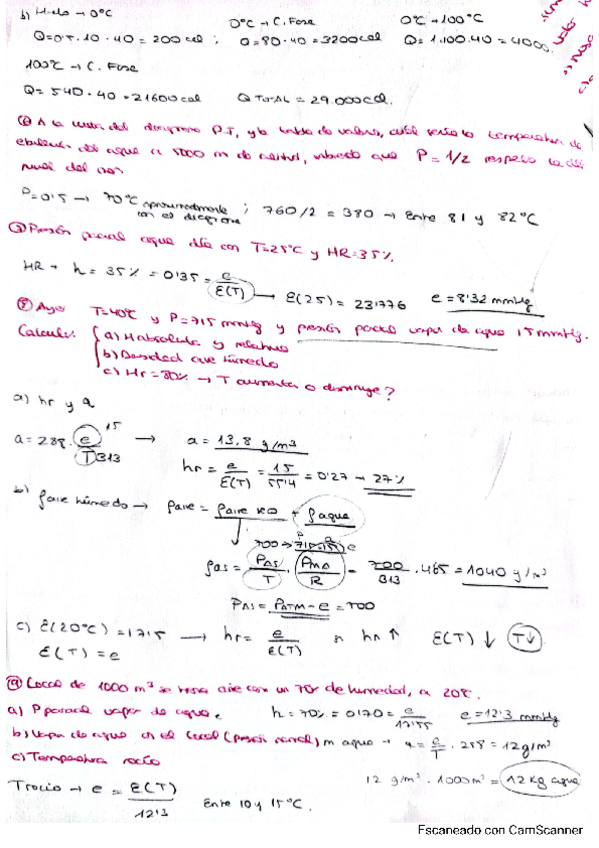 b) Hielo → 0°C
0°C → C. Fase
0°C → 100°C
Q = 0'5 · 10 · 40 = 200 cal ; Q = 80 · 40 = 3200 cal Q = 1·100·40 = 4000.
100°C → C. Fase
Q = 540 · 40 = 21600 cal Q TOTAL = 29.000 cal.
A la vista del diagrama P.T, y la tabla de valores, cuál sería la temperatura de
ebullición del agua a 5000 m de altitud, sabiendo que P = 1/2 respecto la del
nivel del mar.
P = 0'5 → 70°C aproximadamente
con el diagrama ; 760/2 = 380 → Entre 81 y 82°C
③ Presión parcial agua día con T=25°C y HR=35%.
HR → h = 35% = 0'35 = e / E(T) → E(25) = 23'776 e = 8'32 mmHg
T=40°C y P=715 mmHg y presión parcial vapor de agua 15 mmHg.
Calcula: a) H absoluta y relativa
b) Densidad aire húmedo
c) Hr = 80% → T aumenta o disminuye?
a) hr y a
a = 288 · e / T 15 313 → a = 13,8 g/m³
hr = e / E(T) = 15 / 55'4 = 0'27 → 27%
b) ρaire húmedo → ρaire = ρaire seco + ρagua
700 → 715-15
ρas = PAS / T · PMA / R = 700 / 313 · 465 = 1040 g/m³
PAS = PATM - e = 700
c) E(20°C) = 17'5 → hr = e / E(T) hr ↑ E(T) ↓ T↓
E(T) = e
Local de 1000 m³ se aire con un 70% de humedad, a 20°.
a) P parcial vapor de agua. h = 70% = 0'70 = e / 17'55 e = 12'3 mmHg
b) Vapor de agua en el local (presión normal) m agua → a = e / T · 288 = 12 g/m³
c) Temperatura rocío
12 g/m³ · 1000 m³ = 12 kg agua
T rocío → e = E(T)
12'3
Entre 10 y 15°C.
Escaneado con CamScanner